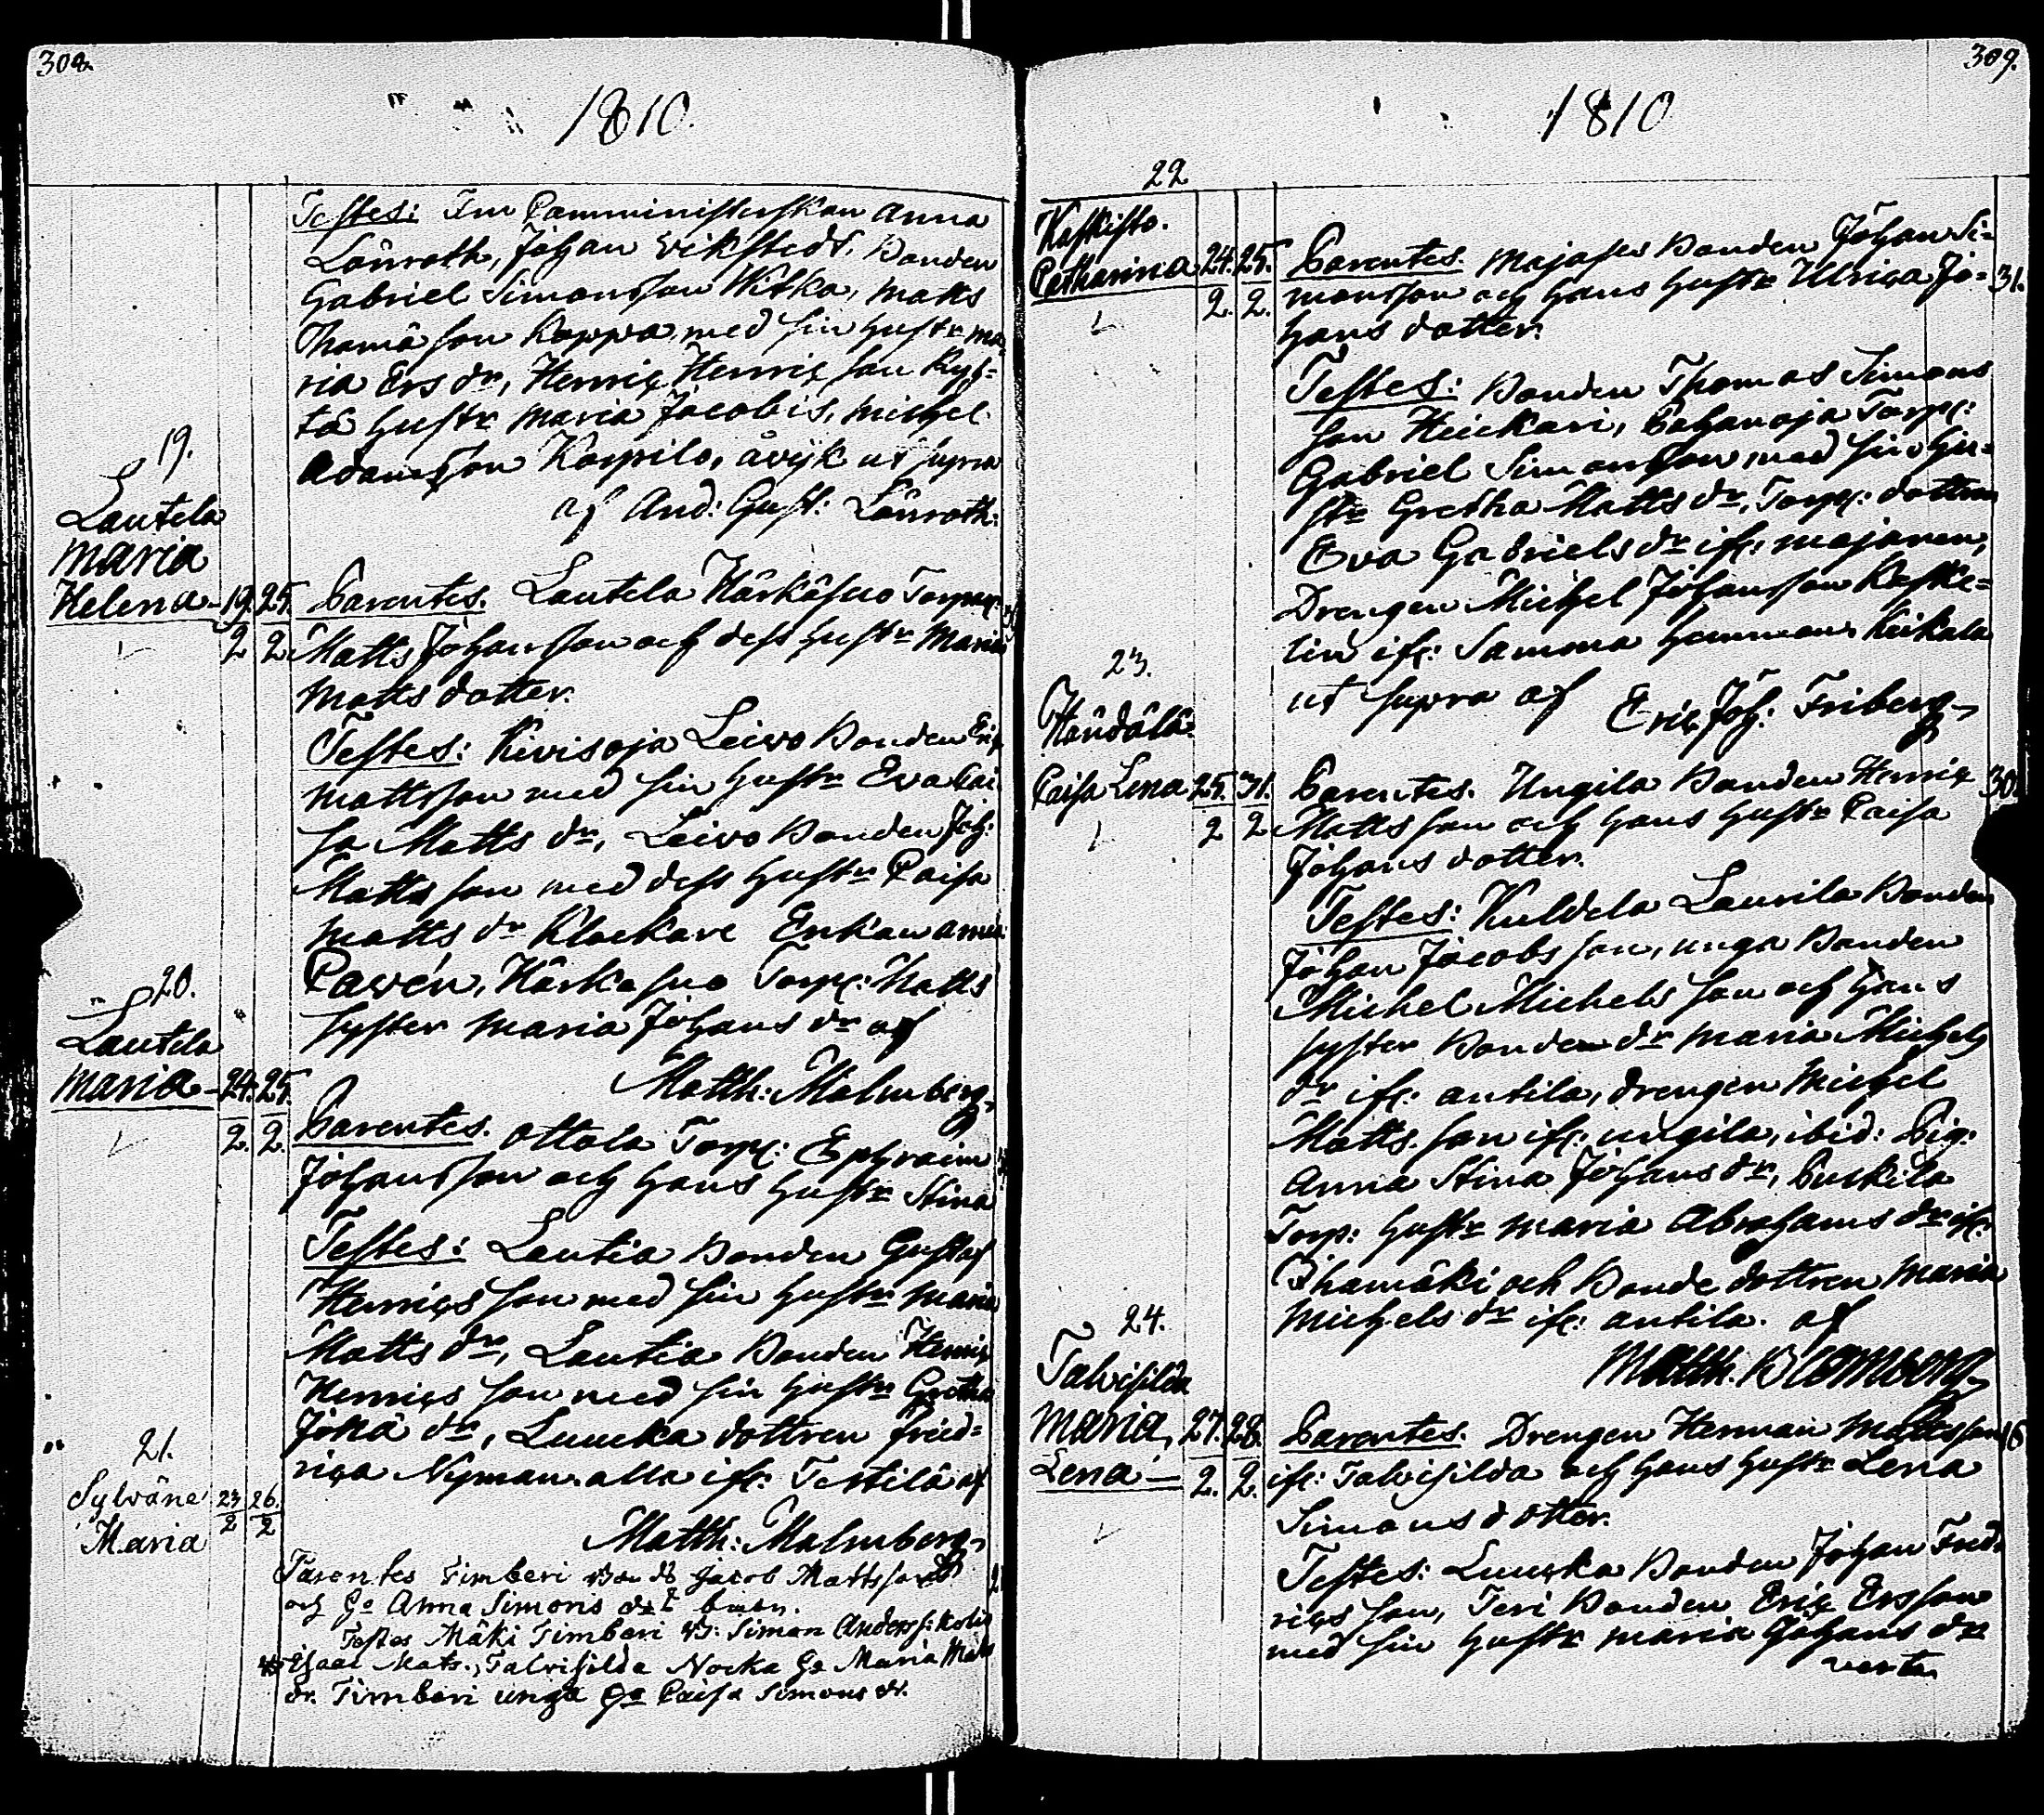 308.
1810.
Testes: Fru Camministerskan Anna
Lönroth, Johan Vikstedt, Bonden
Gabriel Simonsson Witka, Matts
Thomæson Koppa med sin hustr Ma-
ria Ers dr, Henric Henricsson Kyh-
tö hustr Maria Jacobis, Michel
Adamsson Korpilo, avijk ut supra
af And: Gust: Lönroth.
19.
Lautela
Maria
Helena - 19. 25.
2 2
Parentes. Lautela Härkäsuo Torpar
Matts Johansson och dess hustr Maria
Matts dotter.
Testes: Kivisoja Leivo Bonden Eric
Mattsson med sin hustr Eva Cai
sa Matts dr, Leivo Bonden Joh:
Mattsson med dess hustr Caisa
Matts dr Klockare Enkan
Pavén, Härkäsuo Torp: Matts
syster Maria Johans dr af
Matth: Malmberg.
20.
Lautela
Maria - 24. 25.
2. 2.
Parentes. Ottola Torp: Ephraim
Johansson och hans hustr Stina
Testes: Lautia Bonden Gustaf
Henricsson med sin hustr Maria
Matts dr, Lautia Bonden Henric
Henricsson med sin hustr Gretha
Johæ dr, Luucka dottren Fried-
rica Nyman alla ifr: Testilä af
Matth: Malmberg
21.
Sylväne 23 26.
Maria 2 2
Parentes Timberi Bond Jacob Mattsson
och h. Anna Simons dr barn.
Testes Mäki Timberi B: Simon Anders s:
Isaac Mats., Talvisilda Nocka h. Maria Mats
dr. Timberi unga h. Caisa Simons dr.
309.
1810
22
Kaskisto.
Catharina 24. 25.
2. 2.
Parentes. Majases Bonden Johan Si-
monsson och hans hustr Ulrica Jo- 31.
hans dotter.
Testes: Bonden Thomas Simons
son Heickari, Pahanoja Torp:
Gabriel Simonsson med sin hu-
str Gretha Matts dr, Torp: dottren
Eva Gabriels dr ifr: Majanen,
Drengen Michel Johansson Kaske-
lin ifr: Samma hemman Keikala
ut supra af Eric Joh: Friberg
23.
Händälä
Caisa Lena 25. 31.
2 2
Parentes. Ungila Bonden Henric 30.
Mattsson och hans hustr Caisa
Johans dotter.
Testes: Kuldela Laurila Bonden
Johan Jacobsson, unga Bonden
Michel Michelsson och hans
syster Bonde dr Maria Michels
dr ifr: Antila, drengen Michel
Mattsson ifr: Ungila, ibid: Pig:
Anna Stina Johans dr, Puskila
Torp: hustr Maria Abrahams dr ifr:
Ihamäki och Bonde dottren Maria
Michels dr ifr: Antila. af
Matth. Blomberg
24.
Talvisilda
Maria, 27. 28.
Lena - 2. 2.
Parentes. Drengen Herman Mattsson
ifr: Talvisilda och hans hustr Lena
Simons dotter.
Testes: Luucka Bonden Johan Fred-
ricsson, Teri Bonden Eric Ersson
med sin hustr Maria Johans dr
verte